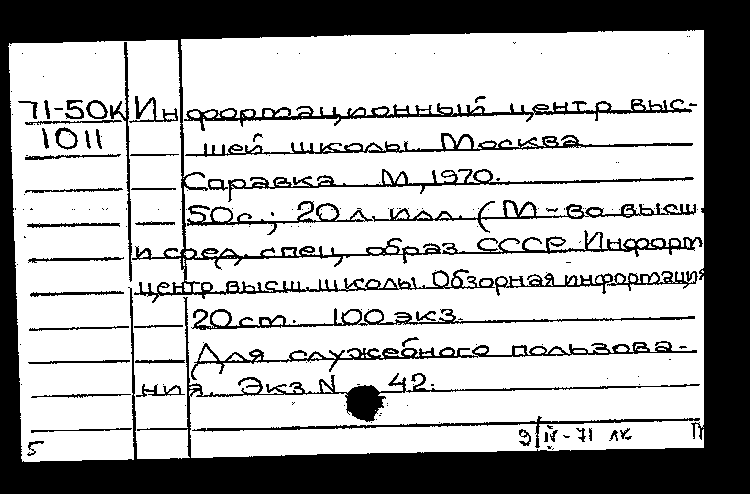 71-50К Информационный центр выс-
1011 шей школы. Москва
Саравка. М., 1970.
50с.; 20 л. илл. (М-во высш.
и сред. спец. образ. СССР. Информ
центр высш. школы. Обзорная информация
20 ст. 100 экз.
Для служебного пользова-
ния. Экз. N 42.
5 9/IV-71 лк